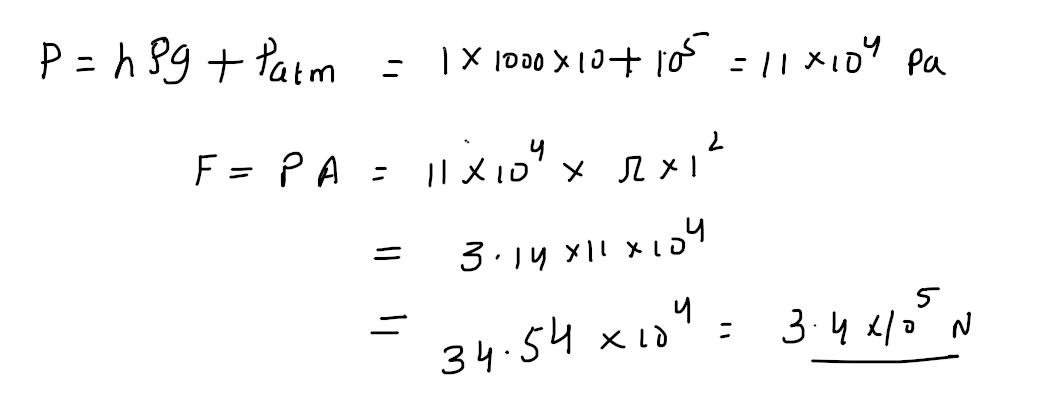 P = hρg + Patm = 1 × 1000 × 10 + 10⁵ = 11 × 10⁴ Pa
F = PA = 11 × 10⁴ × π × 1²
= 3.14 × 11 × 10⁴
= 34.54 × 10⁴ = 3.4 × 10⁵ N